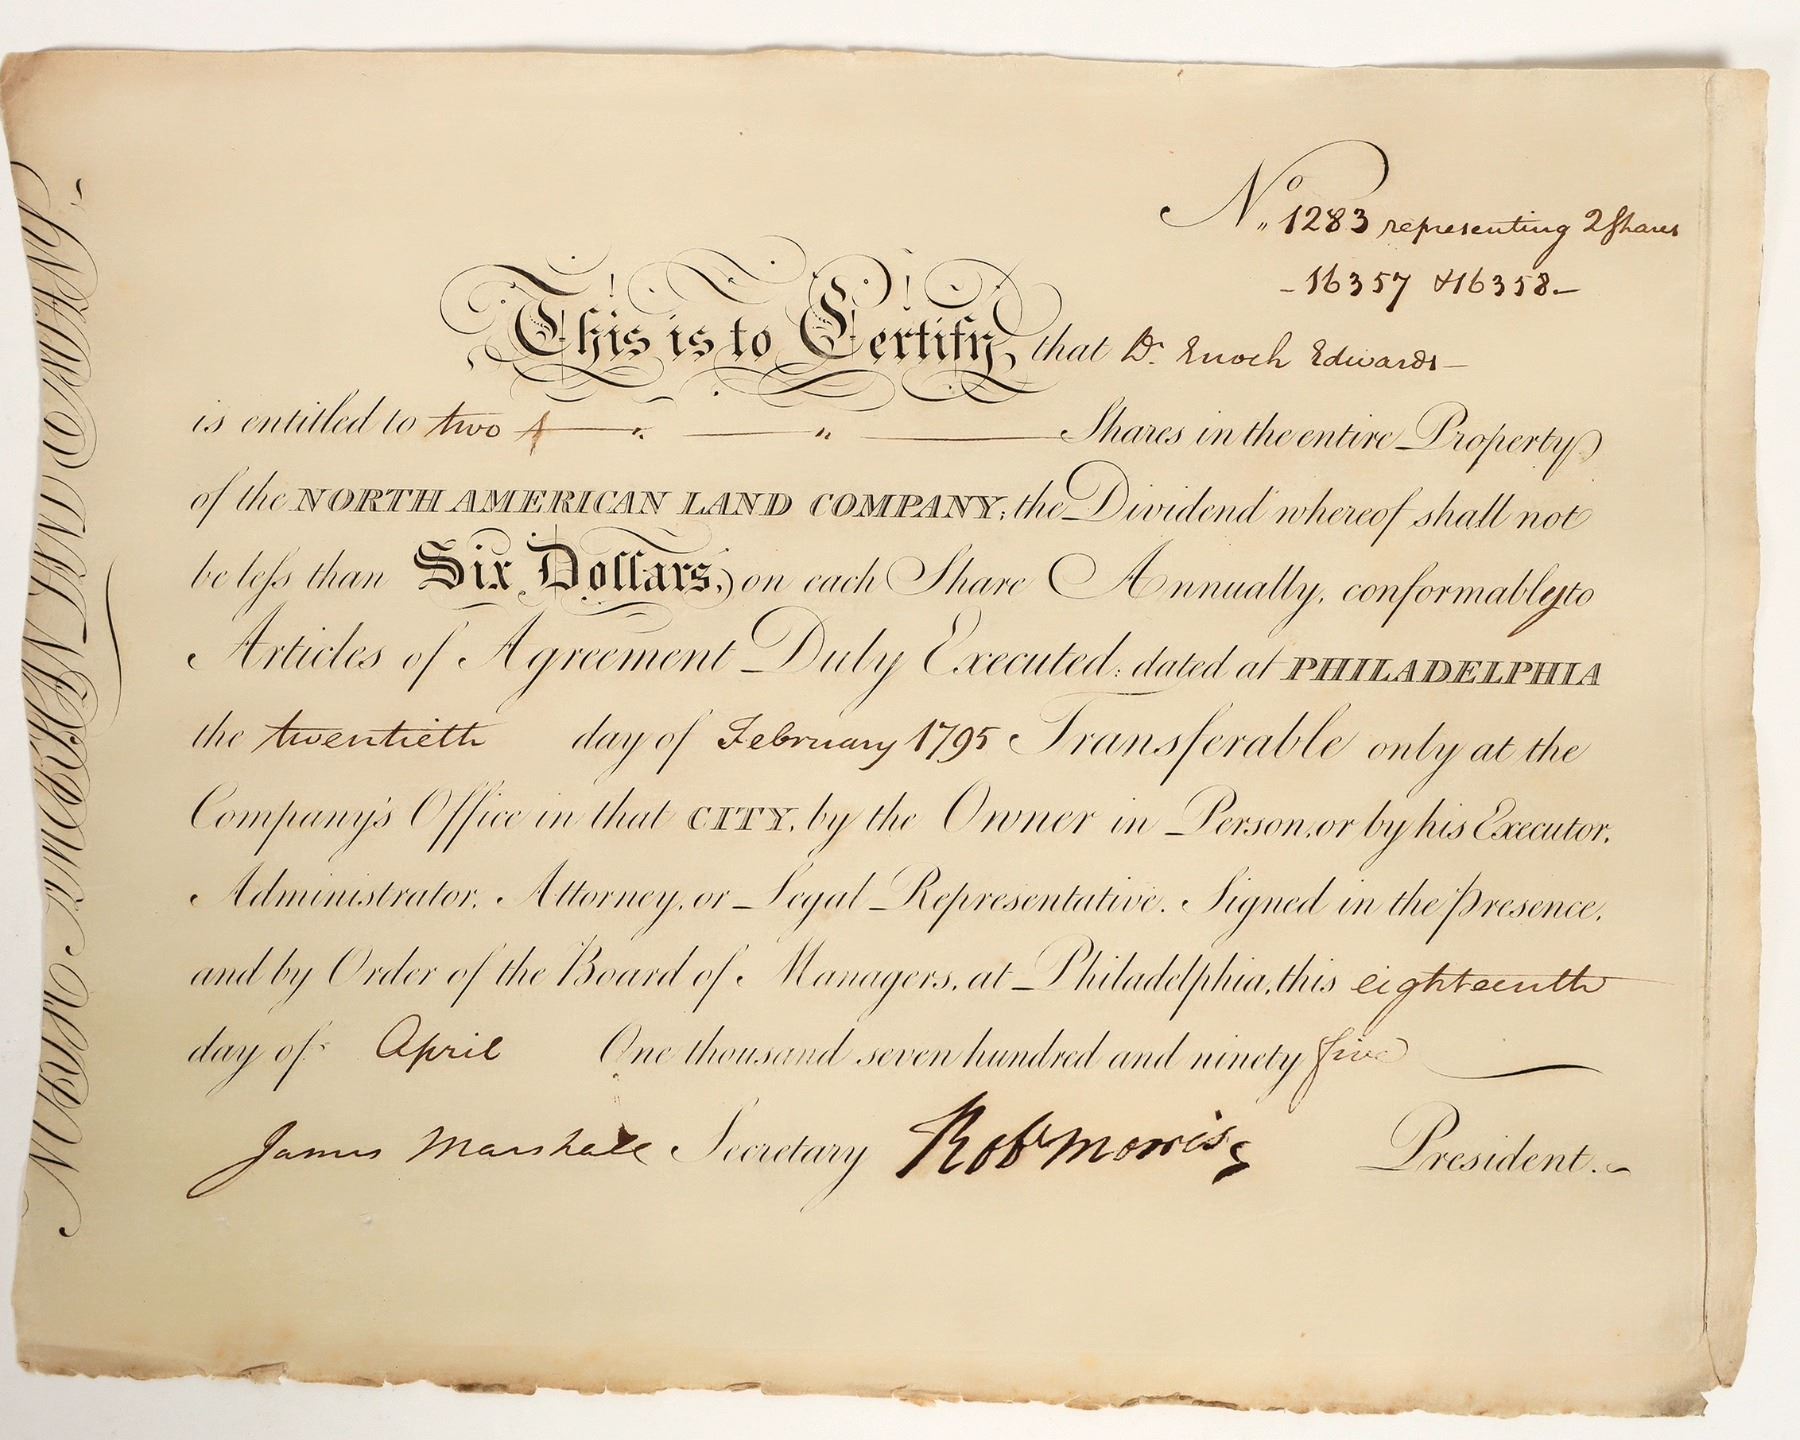 No. 1283 representing 2 Shares
- 16357 & 16358.-
This is to Certify, that Dr. Enoch Edwards
is entitled to two Shares in the entire Property
of the NORTH AMERICAN LAND COMPANY; the Dividend whereof shall not
be less than Six Dollars, on each Share Annually, conformably to
Articles of Agreement Duly Executed; dated at PHILADELPHIA
the twentieth day of February 1795 Transferable only at the
Company's Office in that CITY, by the Owner in Person, or by his Executor,
Administrator, Attorney, or Legal Representative. Signed in the presence,
and by Order of the Board of Managers, at Philadelphia, this eighteenth
day of April One thousand seven hundred and ninety five
James Marshall Secretary Robt Morris President.
NORTH AMERICAN LAND COMPANY